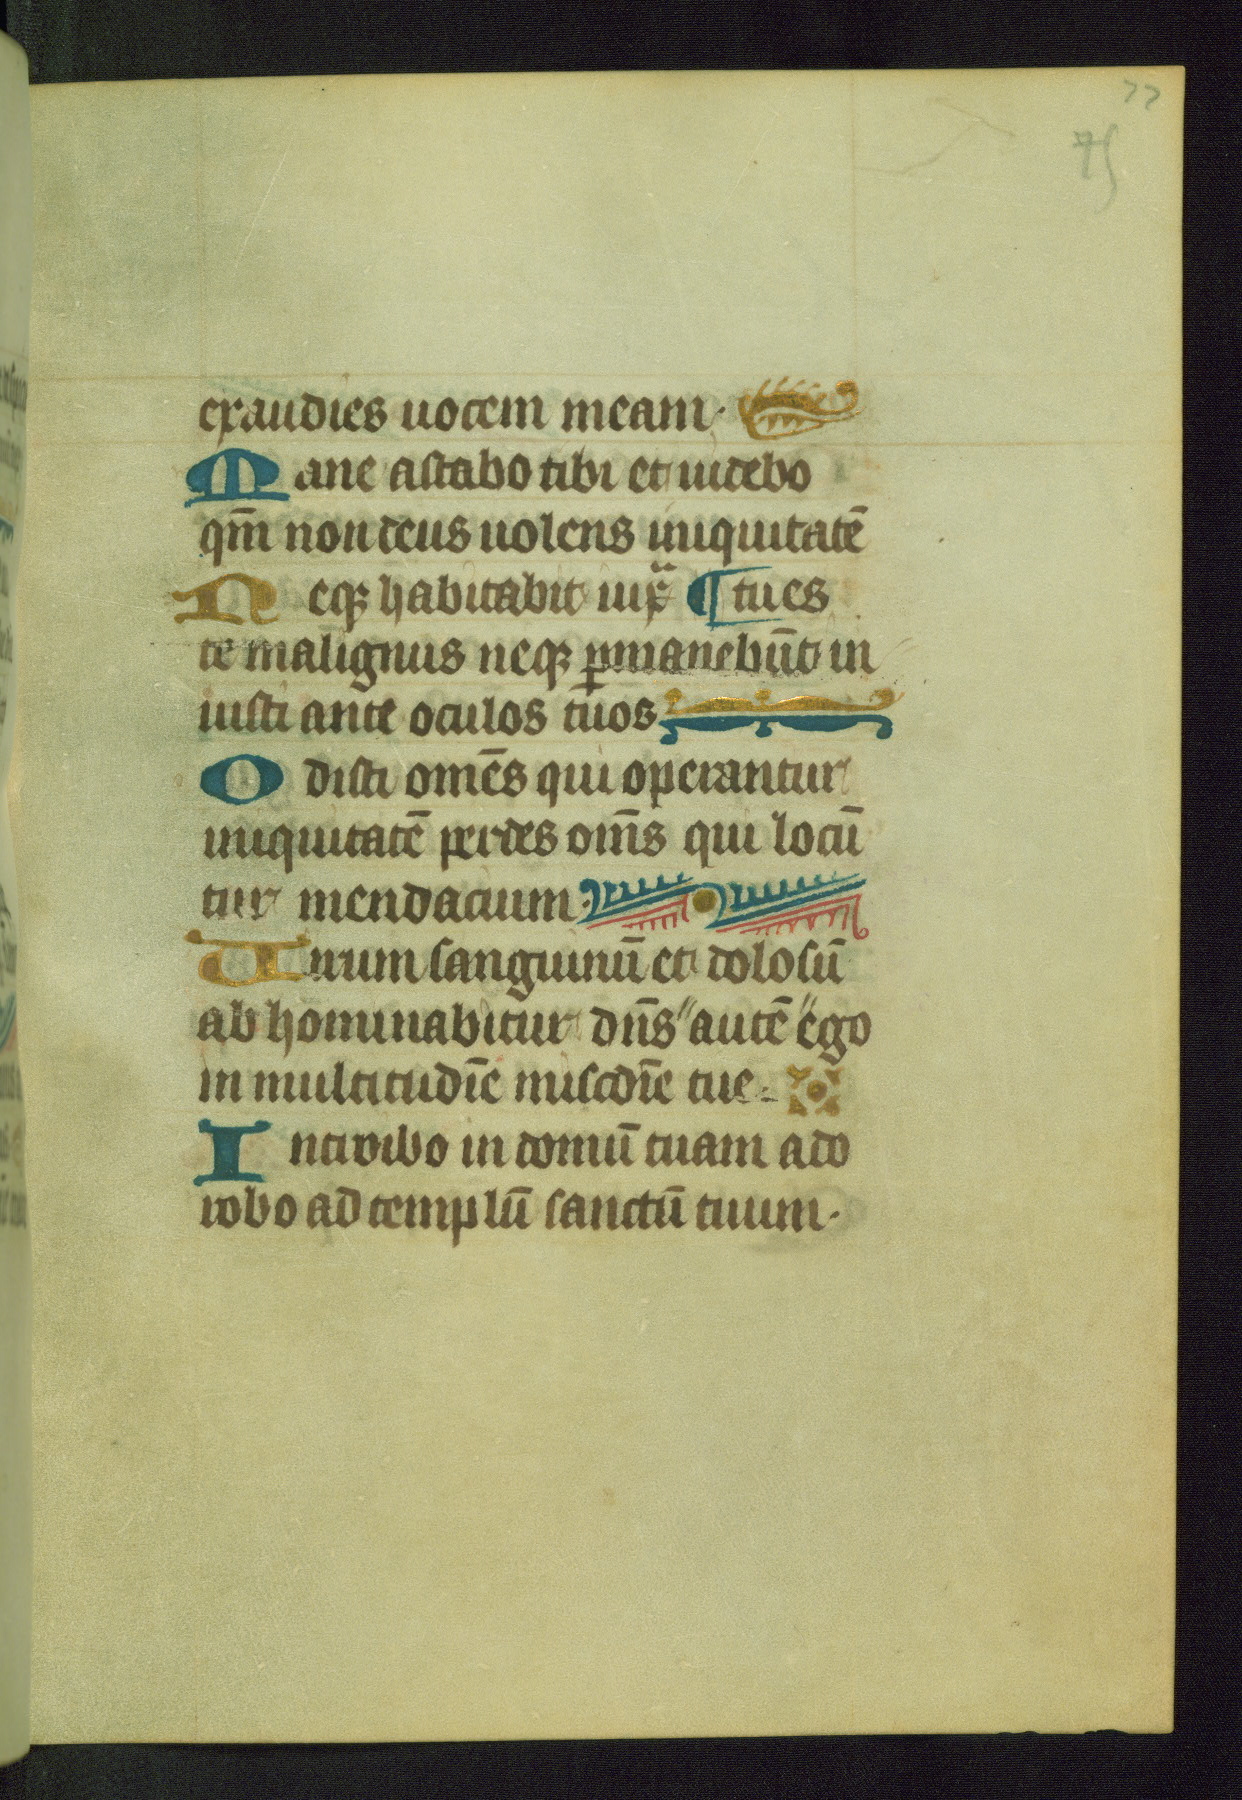 77
75
exaudies uocem meam·
Mane astabo tibi et uidebo
qm̄ non deus uolens iniquitatē
Neqꝫ habitabit iuxͣ ¶ tu es
te malignus neqꝫ ꝑmanebūt in
iusti ante oculos tuos
Odisti omēs qui operantur
iniquitatē perdes om̄s qui locū
tur mendacium·
Uirum sanguinū et dolosū
ab hominabitur dn̄s " autē " ego
in multitudīe miscdīe tue·
Introibo in domū tuam ado
rabo ad templū sanctū tuum·